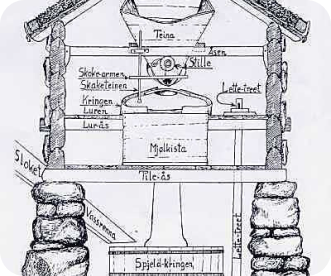 Teina
Åsen
Stille
Skake-armen
Skaketeinen
Lette-treet
Kringen
Luren
Lur-ås
Mjølkista
Sloket
Pile-ås
Vassrenna
Lette-treet
Spjeld-kringen